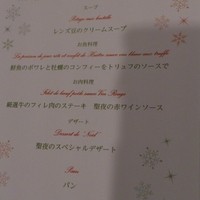 スープ
Potage aux lentilles
レンズ豆のクリームスープ
お魚料理
のポワレと牡蠣のコンフィーをトリュフのソースで
お肉料理
Filet de boeuf poêlé sauce Vin Rouge
厳選牛のフィレ肉のステーキ 聖夜の赤ワインソース
デザート
Dessert de Noël
聖夜のスペシャルデザート
Pain
パン